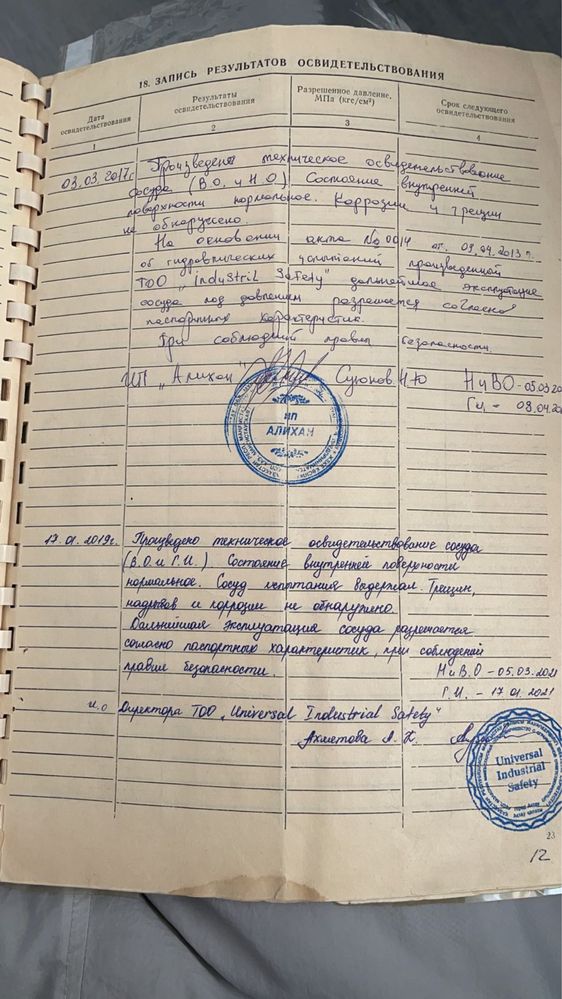 18. ЗАПИСЬ РЕЗУЛЬТАТОВ ОСВИДЕТЕЛЬСТВОВАНИЯ
Дата освидетельствования
Результаты освидетельствования
Разрешенное давление, МПа (кгс/см²)
Срок следующего освидетельствования
1
2
3
4
03.03.2017г Произведено техническое освидетельствование
сосуда (В.О. и Н.О) Состояние внутренней
поверхности нормальное. Коррозии и трещин
не обнаружено.
На основании акта № 0014 от. 09.04.2013 г.
от гидровлических испытаний произведенной
ТОО "Industril Safety" дальнейшое эксплутацие
сосуда под давлением разрешается согласно
паспортных характеристик.
При соблюдний правил безопасности.
ИП "Алихан" Н.Ю НиВО - 05.03.20
Ги - 09.04.20
ИП
АЛИХАН
17.01.2019г. Произведено техническое освидетельствование сосуда
(В.О и Г.И.). Состояние внутренней поверхности
нормальное. Сосуд испытания выдержал. Трещин,
надрывов и коррозии не обнаружено.
Дальнейшая эксплуатация сосуда разрешается
согласно паспортных характеристик, при соблюдений
правил безопасности. НиВ.О - 05.03.2021
Г.И. - 17.01.2021
и.о Директора ТОО "Universal Industrial Safety"
Ахметова А. К.
Universal
Industrial
Safety
23
12